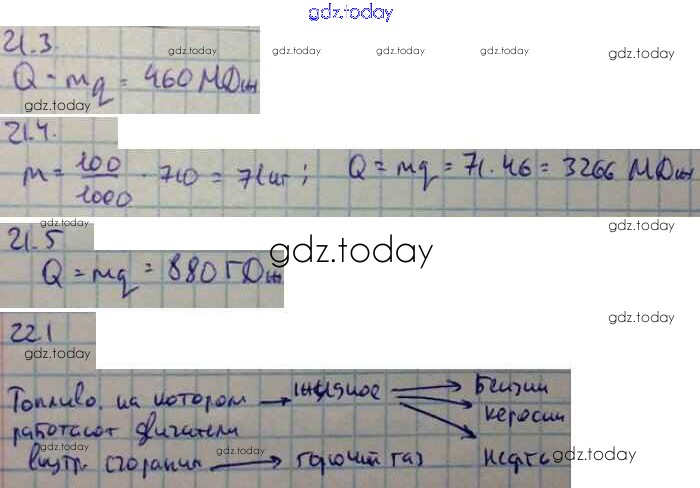 gdz.today
21.3.
gdz.today gdz.today gdz.today gdz.today
Q = mq = 460 МДж
gdz.today
21.4.
m = 100/1000 · 710 = 71 кг; Q = mq = 71 · 46 = 3266 МДж
gdz.today gdz.today
21.5
gdz.today
Q = mq = 880 ГДж
gdz.today
22.1
gdz.today
Топливо, на котором → жидкое → Бензин
работают двигатели → керосин
внутр. сгорания → горючий газ → нефть
gdz.today gdz.today gdz.today